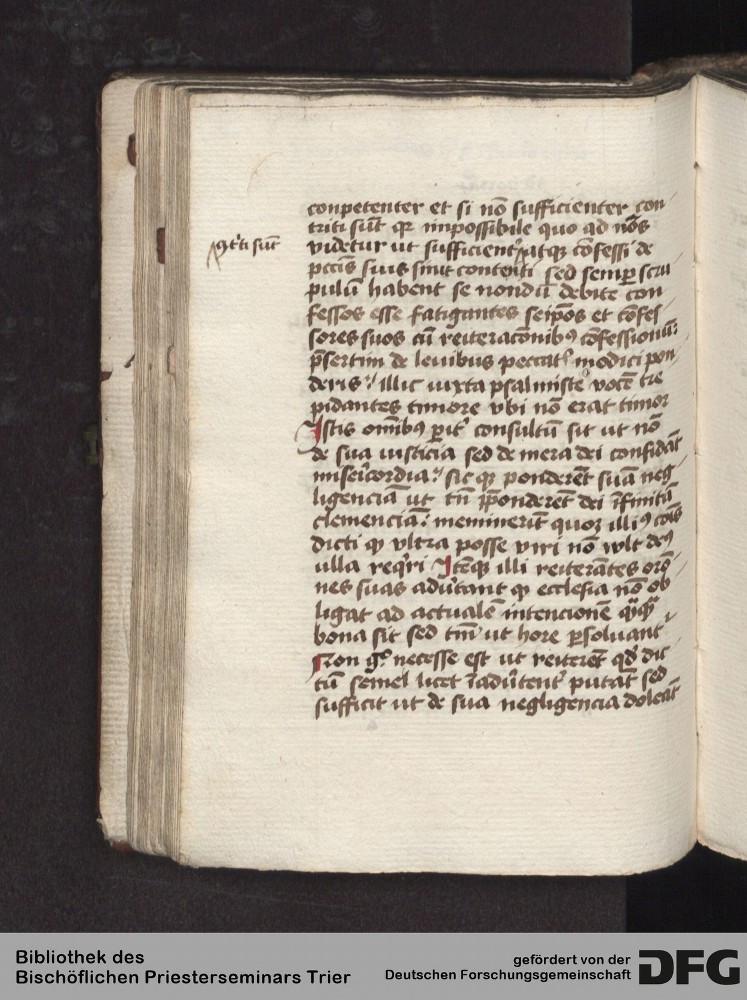 conpetenter et si nō sufficienter con
triti sūt qꝛ impossibile quo ad nōs
q̄triti sūt
videtur ut sufficient᷑ atqꝫ cōfessi de
pccīs suis sint contenti sed semꝑ scru
pulū habent se nondū debite con
fessos esse fatigantes seip̄os et cōfes
sores suos cū reiteracōnibꝰ cōfessionū:
p̄sertim de leuibus peccat᷑ modici pon
deris: illic iuxta psalmiste vocē tre
pidantes timore vbi nō erat timor
Istis om̄ibꝰ ꝑit᷑ consultū sit ut nō
de sua iusticia sed de mera dei confidāt
misericordia: sic qꝫ ponderēt suā neg
ligenciā ut tn̄ p̄ponderēt dei īfinitā
clemenciā: meminerīt quoqꝫ illiꝰ cōis
dicti ꝙ vltra posse viri nō vult deꝰ
ulla req̇ri Itēqꝫ illi reiterātes orō
nes suas adūtant ꝙ ecclesia nō ob
ligat ad actualē intencionē q̄q̄
bona sit sed tm̄ ut hore ꝑsoluant᷑
Non gͦ necesse est ut reiterēt qd̄ dic
tū semel licet īadūtent᷑ putāt sed
sufficit ut de sua negligencia doleāt
Bibliothek des
Bischöflichen Priesterseminars Trier
gefördert von der
Deutschen Forschungsgemeinschaft
DFG